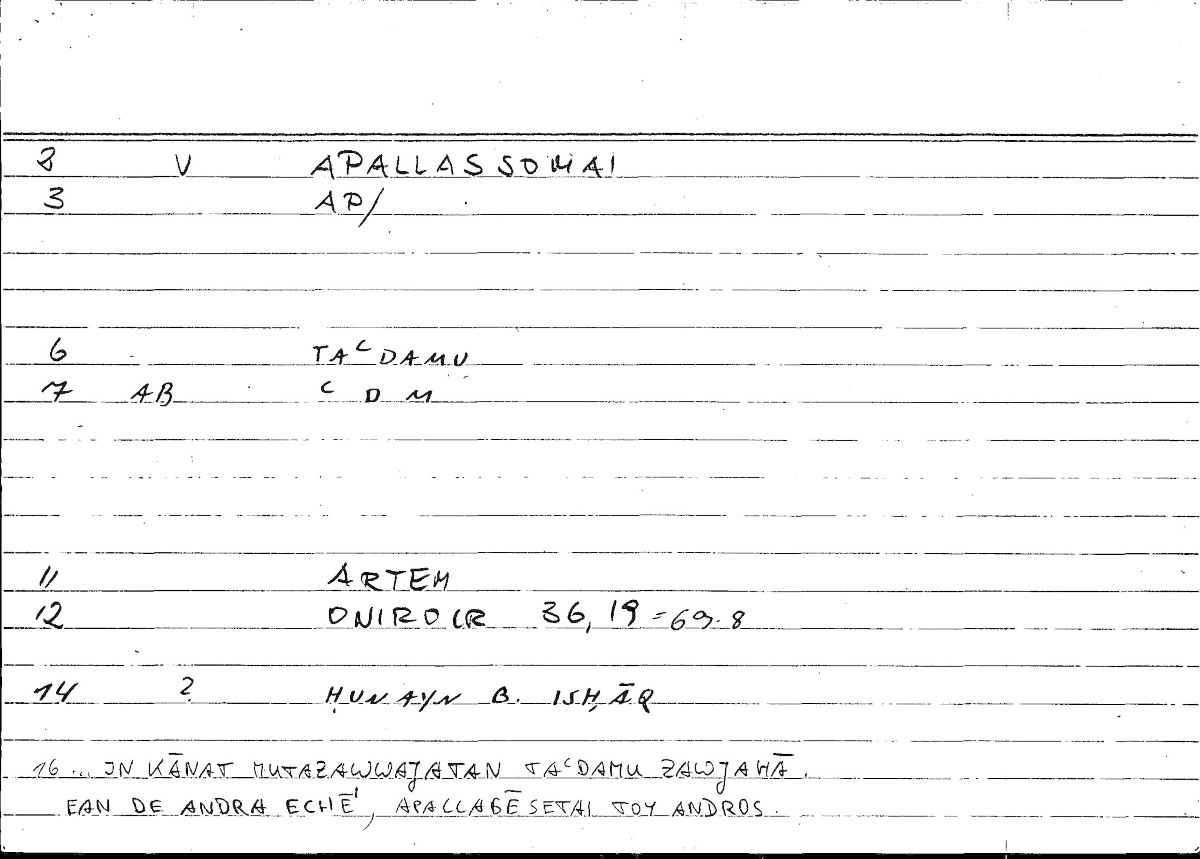 2 V APALLASSOMAI
3 AP/
6 TAᶜDAMU
7 AB ᶜ D M
11 ARTEM
12 ONIROCR 36,19 = 69.8
14 ? ḤUNAYN B. ISḤĀQ
16 ... IN KĀNAT MUTAZAWWAJATAN TAᶜDAMU ZAWJAHĀ.
EAN DE ANDRA ECHĒ', APALLAGĒSETAI TOY ANDROS.